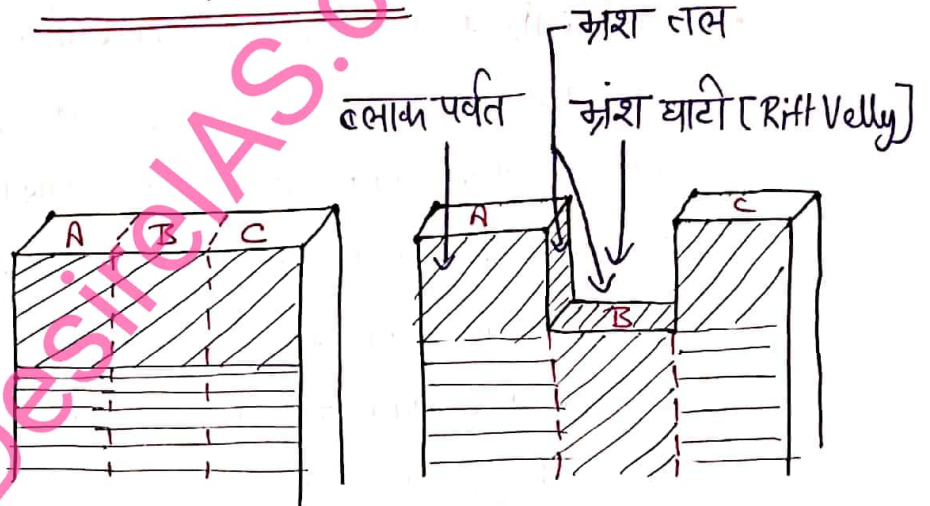 भ्रंश तल
ब्लाक पर्वत
भ्रंश घाटी [Rift Velly]
A B C
A
C
B
DesireIAS.c